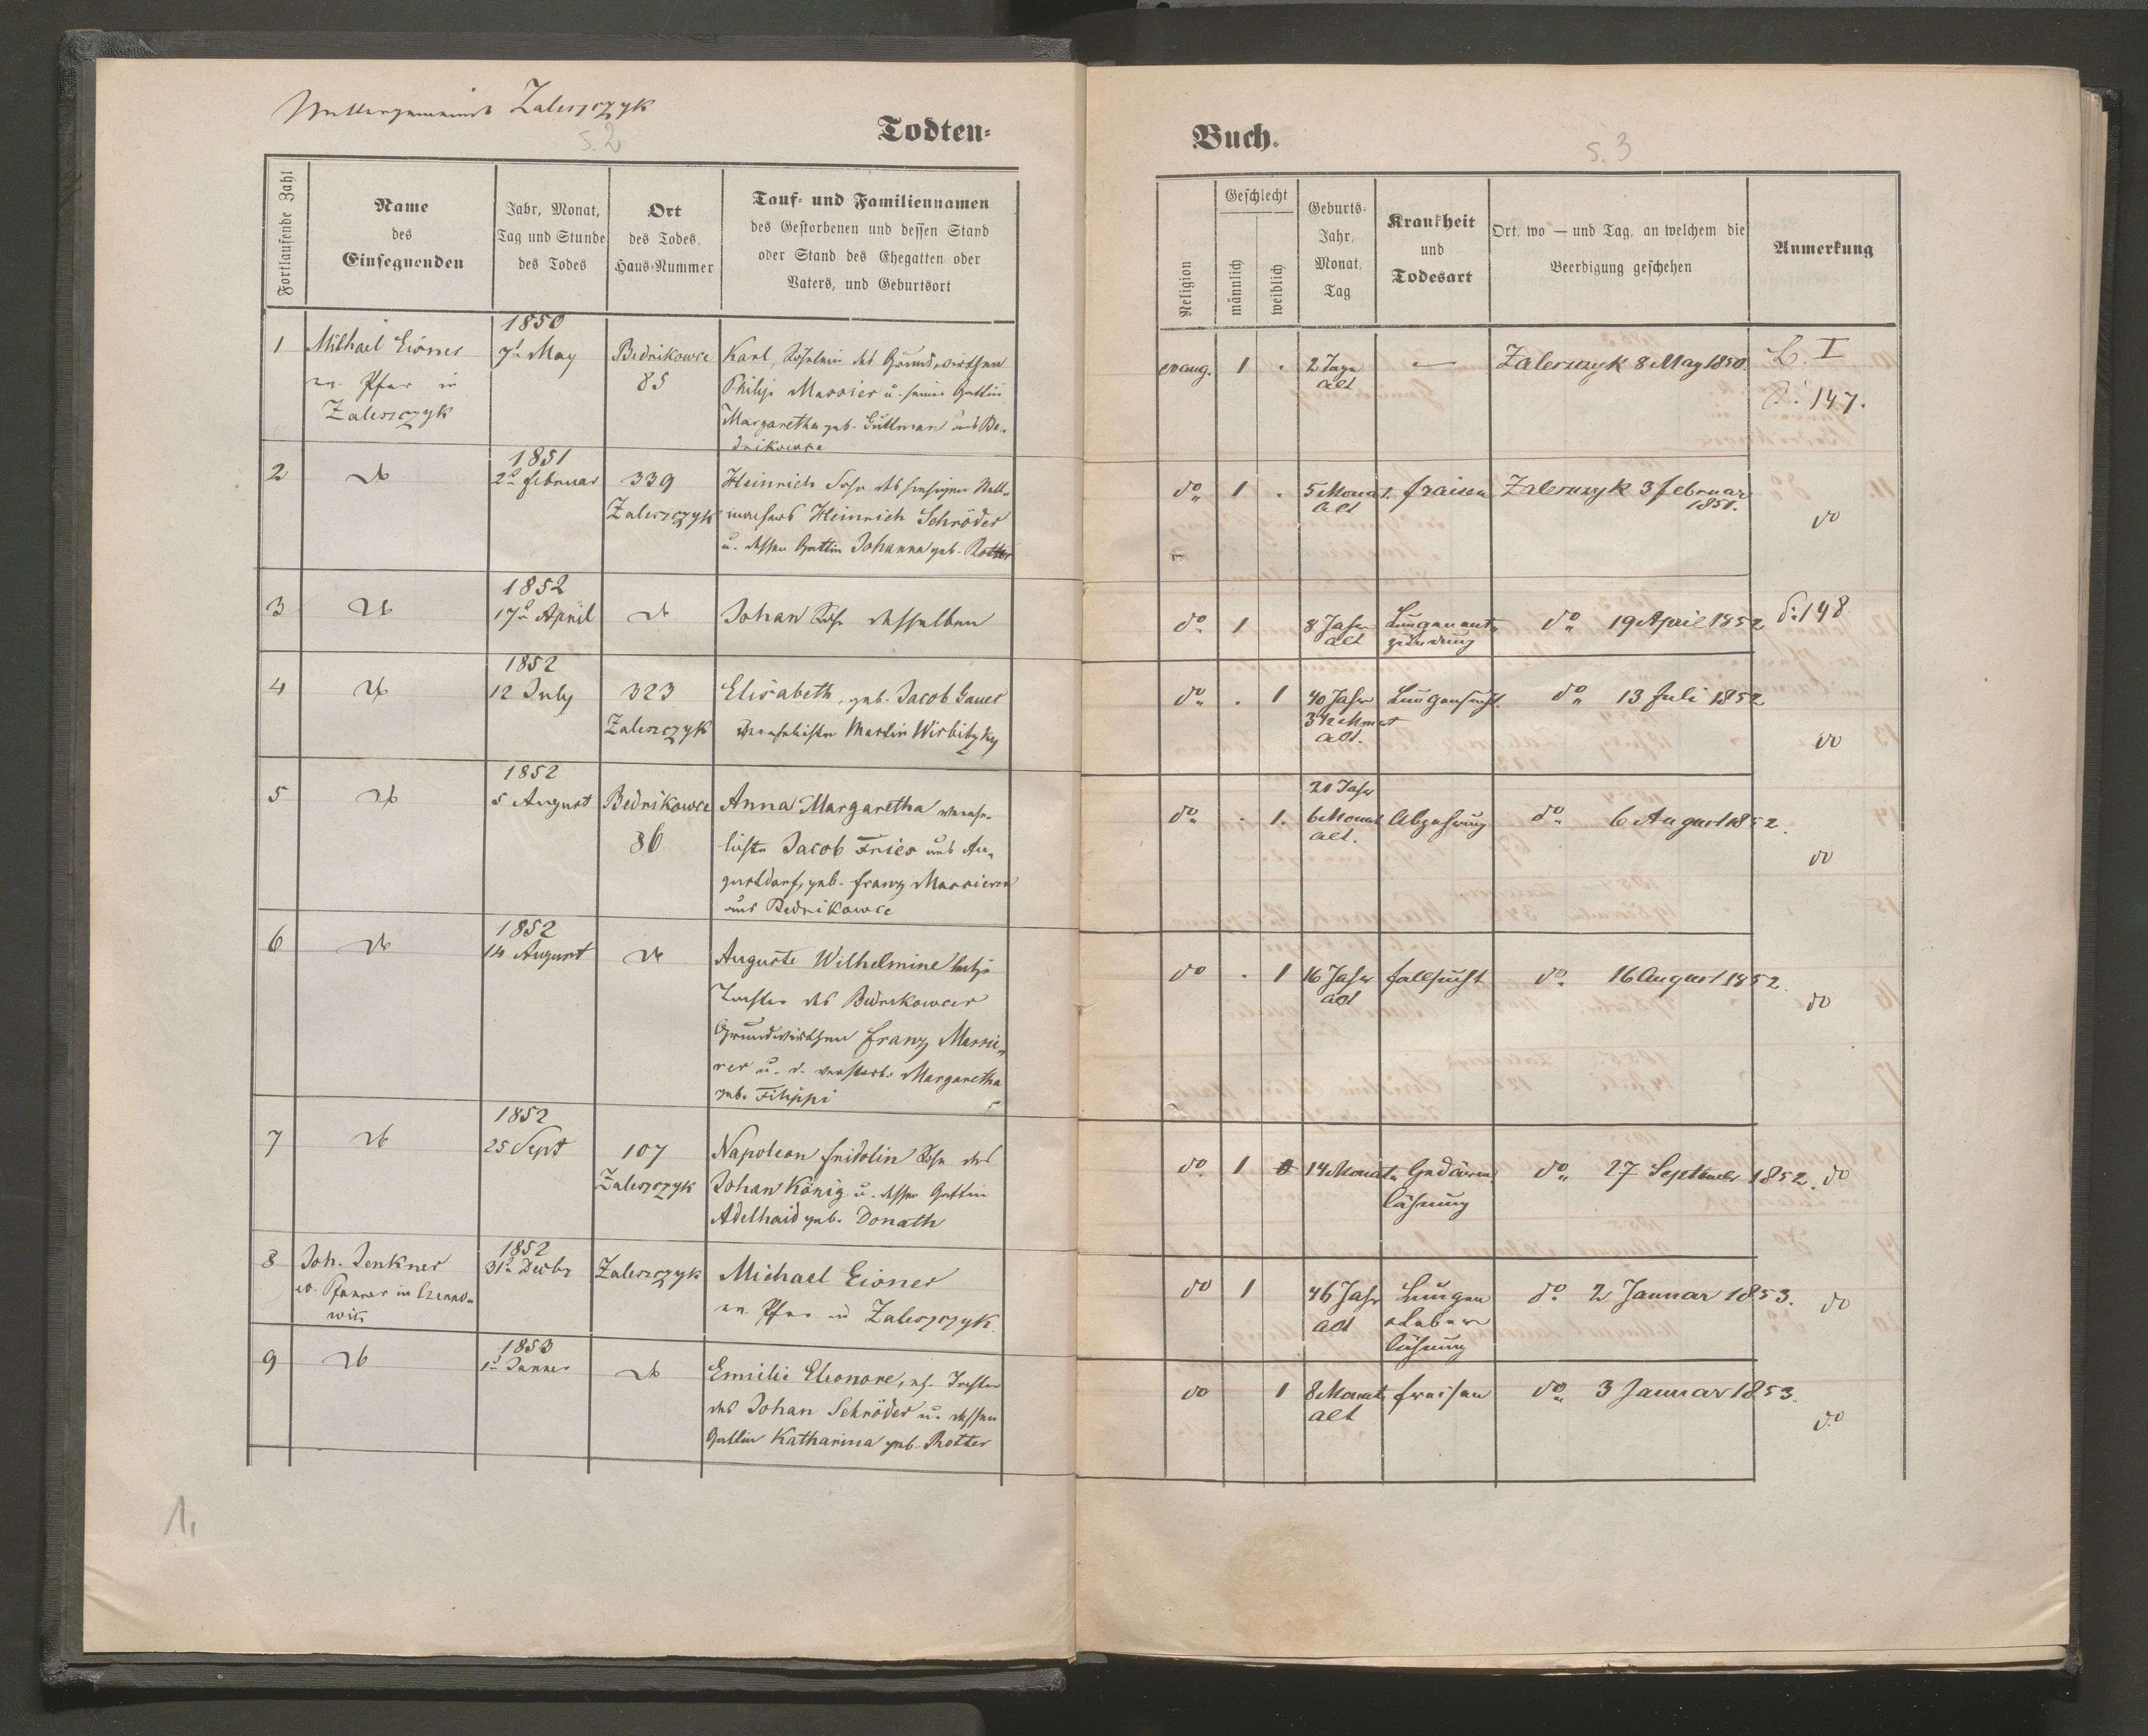 Muttergemeinde Zaleszczyk
S. 2
Todten-
Fortlaufende Zahl
Name
des
Einsegnenden
Jahr, Monat,
Tag und Stunde
des Todes
Ort
des Todes,
Haus-Nummer
Tauf- und Familiennamen
des Gestorbenen und dessen Stand
oder Stand des Ehegatten oder
Vaters, und Geburtsort
1
Michael Eisner
ev. Pfar in
Zaleszczyk
1850
7t May
Bedrikowce
85
Karl, Söhnlein des Grundwirthen
Philip Massier u. seiner Gattin
Margaretha geb. Gullman aus Be-
drikowce
2
do
1851
2t februar
339
Zaleszczyk
Heinrich Sohn des hiesigen
Heinrich Schröder
u. dessen Gattin Johanna geb. Rotter
3
do
1852
17t April
do
Johan Sohn desselben
4
do
1852
12 July
323
Zaleszczyk
Elisabeth, geb. Jacob Gauer
verehelichte Martin Wirbitzky
5
do
1852
5 August
Bedrikowce
86
Anna Margaretha vereh-
lichte Jacob Fries aus Au-
gustdorf, geb. franz Massierer
aus Bedrikowce
6
do
1852
14 August
do
Auguste Wilhelmine
Tochter des Bedrikowcer
Grundwirthen franz Massie-
rer u. d. verstorb. Margaretha
geb. Filippi
7
do
1852
25 Sept
107
Zaleszczyk
Napoleon fridolin Sohn des
Johan König u. dessen Gattin
Adelhaid geb. Donath
8
Joh. Jenkner
ev. Pfarrer in Czerno-
witz
1852
31t Decbr
Zaleszczyk
Michael Eisner
ev. Pfar in Zaleszczyk
9
do
1853
1t Janner
do
Emilie Eleonore, eh. Tochter
des Johan Schröder u. dessen
Gattin Katharina geb. Rotter
1.
Buch.
S. 3
Religion
Geschlecht
männlich
weiblich
Geburts-
Jahr,
Monat,
Tag
Krankheit
und
Todesart
Ort, wo — und Tag, an welchem die
Beerdigung geschehen
Anmerkung
evang. 1 . 2 Tage
alt
—
Zaleszczyk 8 May 1850.
L. I
S. 147.
do 1 . 5 Monat
alt
fraisen
Zaleszczyk 3 februar
1851.
do
do 1 8 Jahr
alt
Lungenent-
zündung
do 19 April 1852
S. 148.
do . 1 40 Jahr
3 1/2 Monat
alt.
Lungensucht.
do 13 Juli 1852
do
do . 1. 21 Jahr
6 Monat
alt.
Abzehrung
do 6 August 1852.
do
do . 1 16 Jahr
alt
fallsucht
do 16 August 1852.
do
do 1 14 Monate
Gedärm
lähmung
do 27 September 1852.
do
do 1 46 Jahr
alt
Lungen
lähmung
do 2 Januar 1853.
do
do 1 8 Monat
alt
fraisen
do 3 Januar 1853.
do